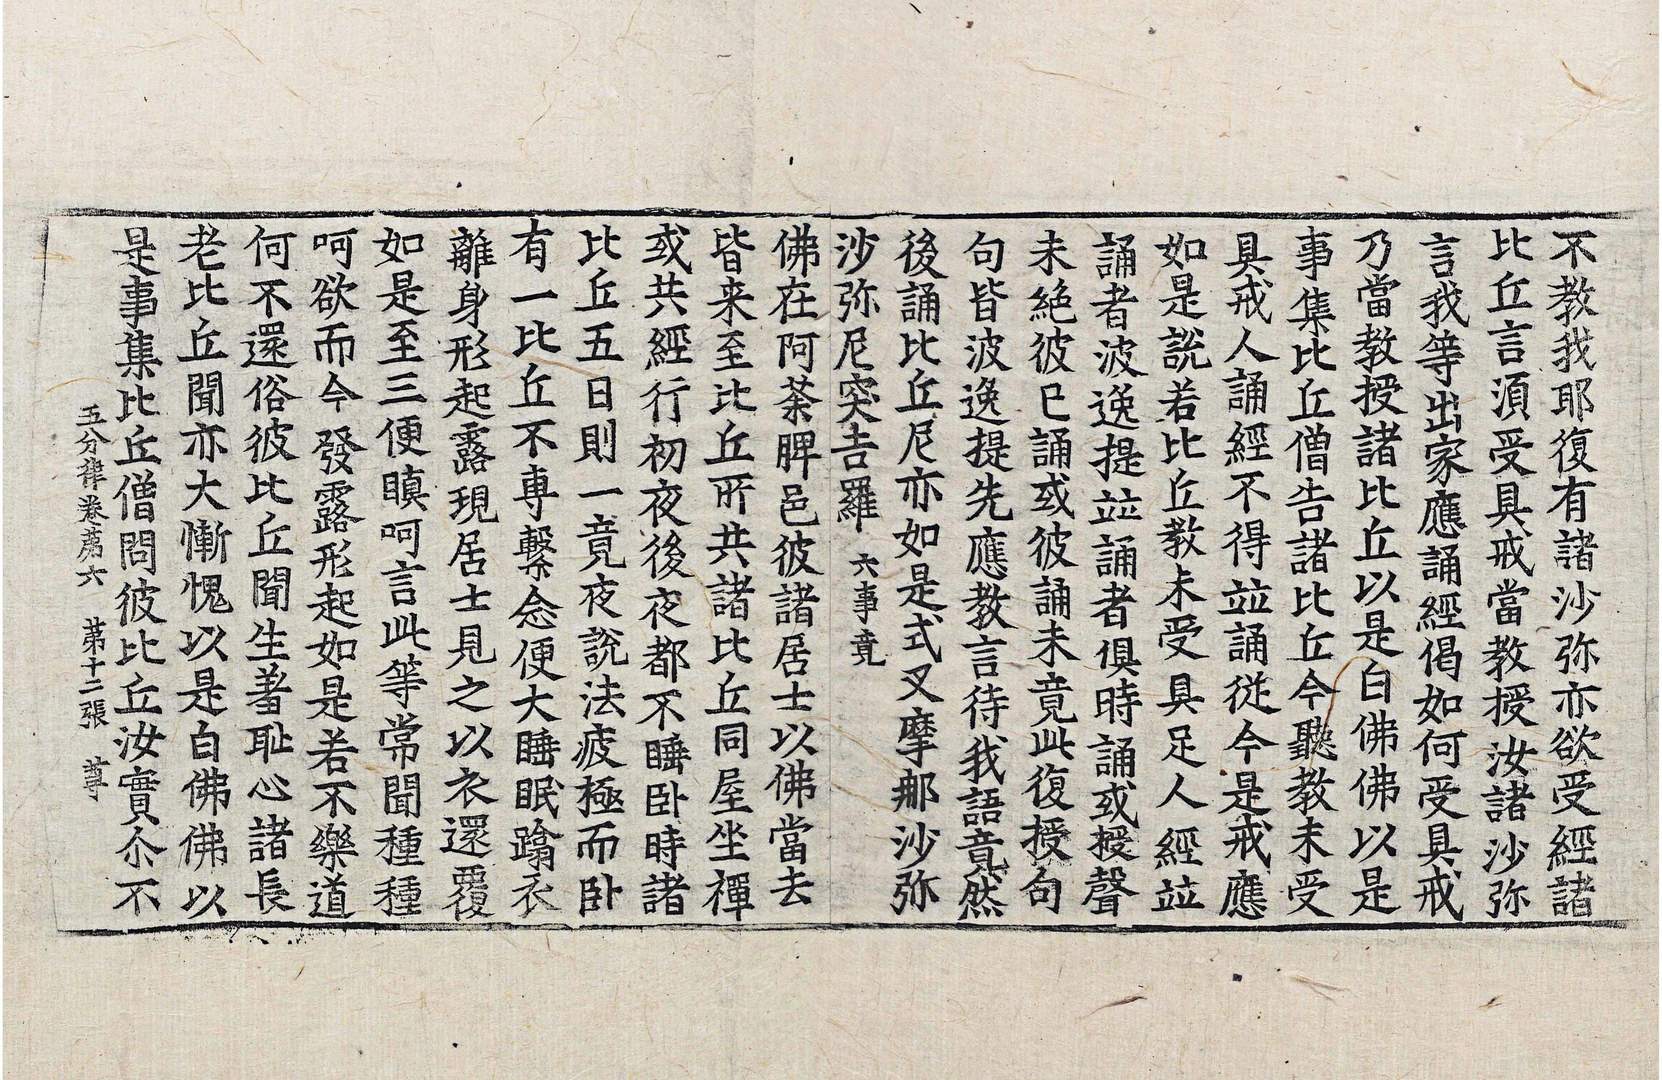 不教我耶復有諸沙弥亦欲受經諸
比丘言湏受具戒當教授汝諸沙弥
言我等出家應誦經偈如何受具戒
乃當教授諸比丘以是白佛佛以是
事集比丘僧告諸比丘今聽教未受
具戒人誦經不得並誦從今是戒應
如是說若比丘教未受具足人經並
誦者波逸提並誦者俱時誦或授聲
未絶彼已誦或彼誦未竟此復授句
句皆波逸提先應教言待我語竟然
後誦比丘尼亦如是式叉摩那沙弥
沙弥尼突吉羅 六事竟
佛在阿荼脾邑彼諸居士以佛當去
皆来至比丘所共諸比丘同屋坐禪
或共經行初夜後夜都不睡卧時諸
比丘五日則一竟夜說法疲極而卧
有一比丘不專繫念便大睡眠踰衣
離身形起露現居士見之以衣還覆
如是至三便瞋呵言此等常聞種種
呵欲而今發露形起如是若不樂道
何不還俗彼比丘聞生著耻心諸長
老比丘聞亦大慚愧以是白佛佛以
是事集比丘僧問彼比丘汝實尒不
五分律卷苐六 苐十二張 尊